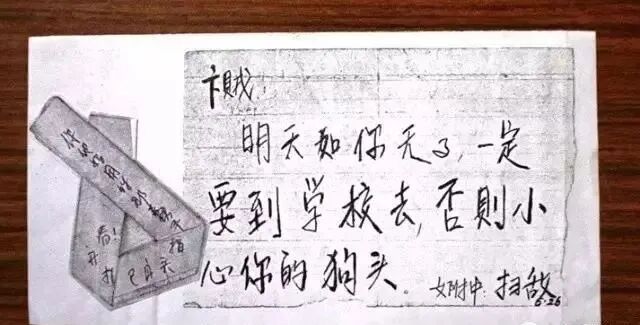 卞贼:
明天如你无了,一定
要到学校去,否則小
心你的狗头.
女附中:扫敌
6.26
看!